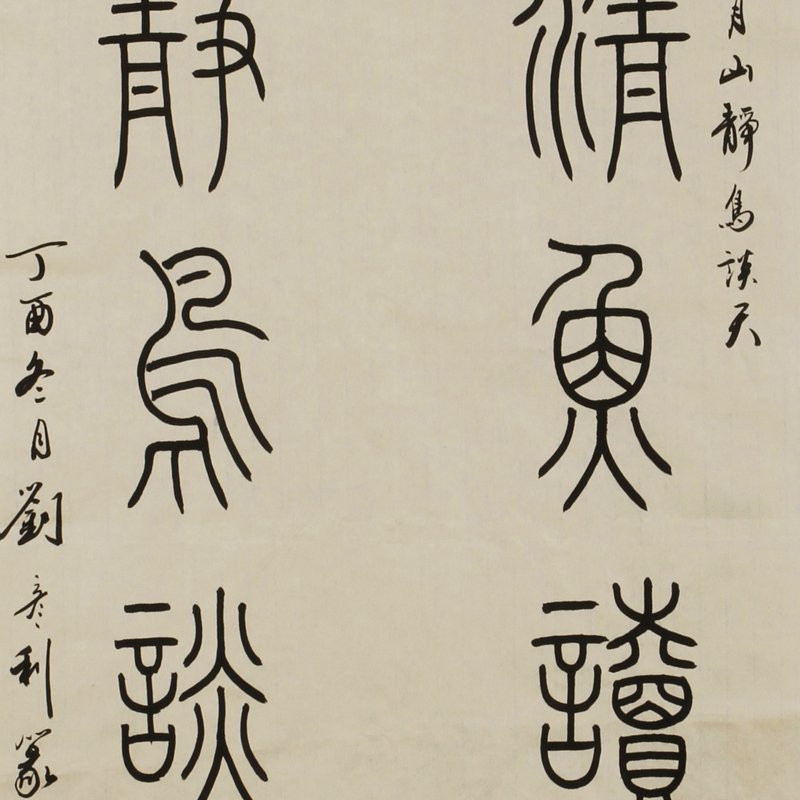 月山靜鳥談天
清魚讀
靜鳥談
丁酉冬月劉彥利篆